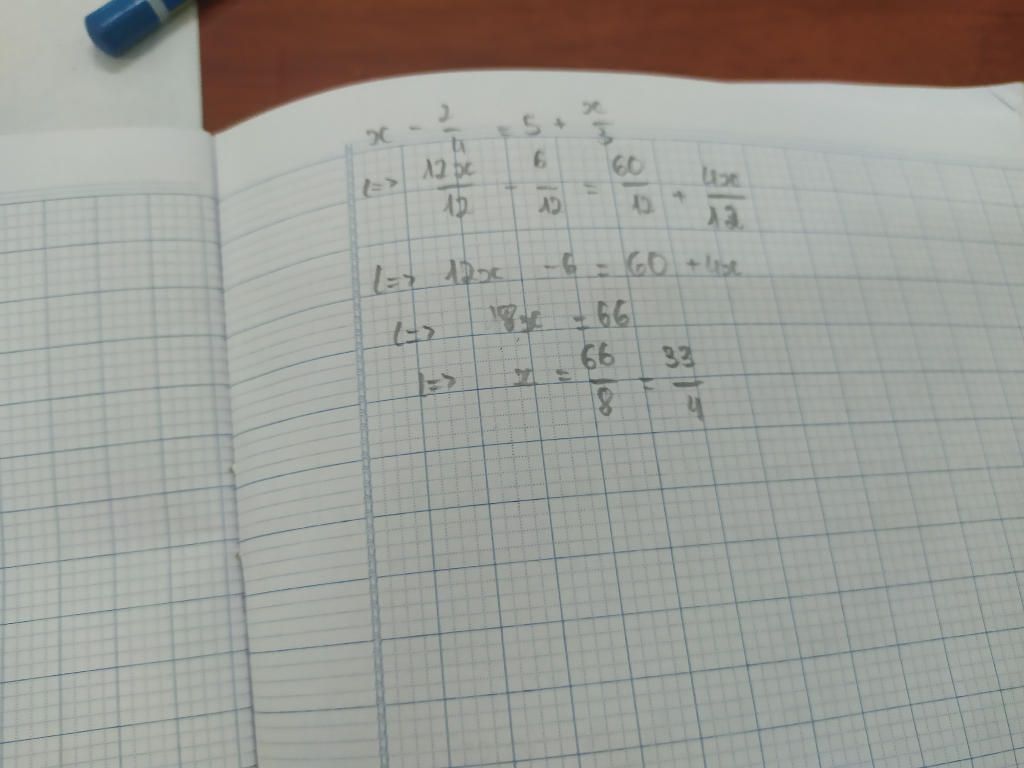 x - 2/4 = 5 + x/3
<=> 12x/12 - 6/12 = 60/12 + 4x/12
<=> 12x - 6 = 60 + 4x
<=> 8x = 66
<=> x = 66/8 = 33/4